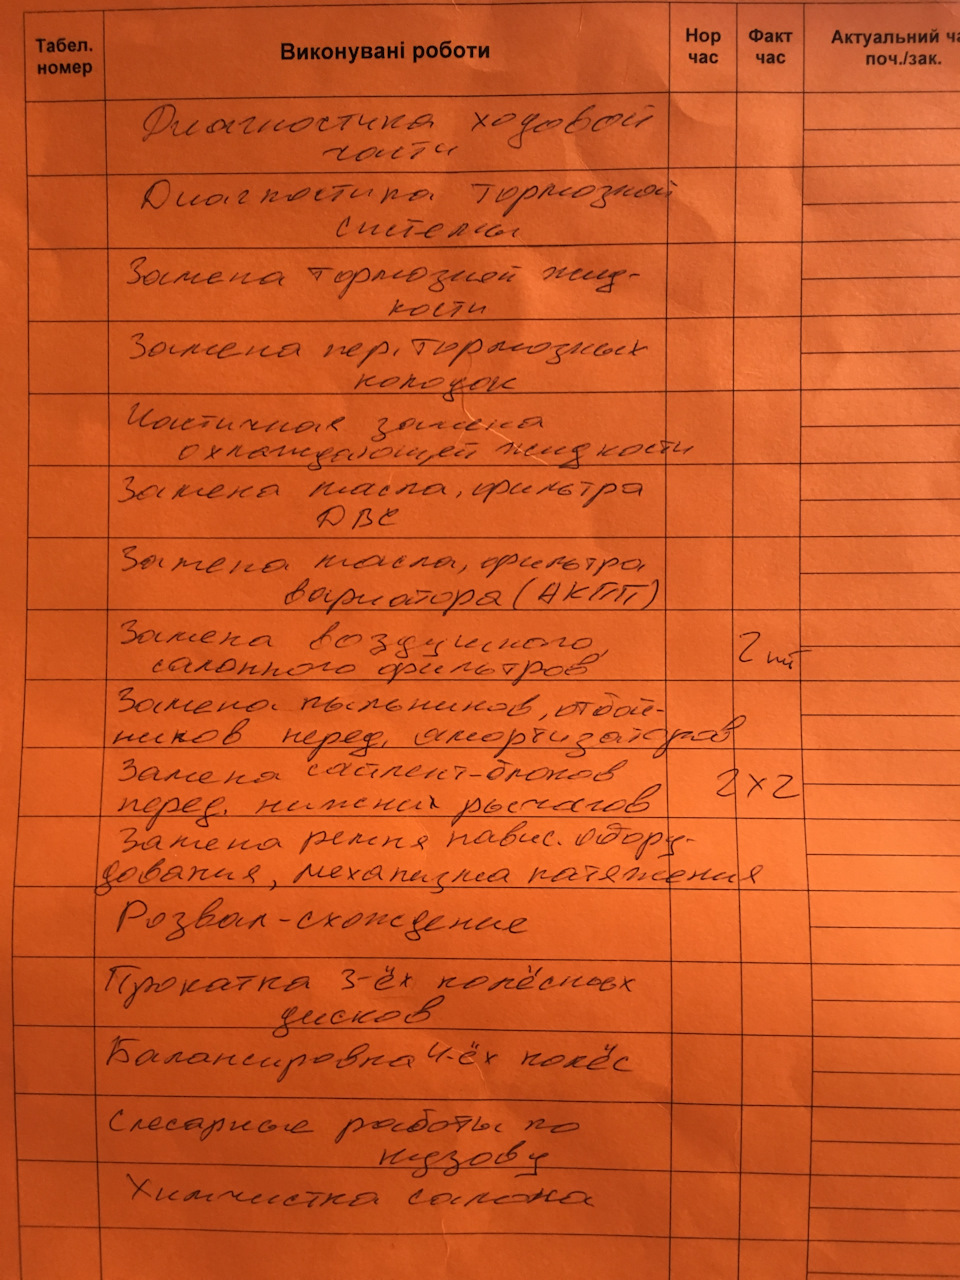 Табел. номер
Виконувані роботи
Нор час
Факт час
Актуальний ча
поч./зак.
Диагностика ходовой
части
Диагностика тормозной
системы
Замена тормозной жид-
кости
Замена пер. тормозных
колодок
Частичная замена
охлаждающей жидкости
Замена масла, фильтра
ДВС
Замена масла, фильтра
вариатора (АКПП)
Замена воздушного,
салонного фильтров 2 шт
Замена пыльников, отбой-
ников перед. амортизаторов
Замена сайлент-блоков
перед. нижних рычагов 2х2
Замена ремня навис. обору-
дования, механизма натяжения
Розвал-схождение
Прокатка 3-ёх колёсных
дисков
Балансировка 4-ёх колёс
Слесарные работы по
кузову
Химчистка салона